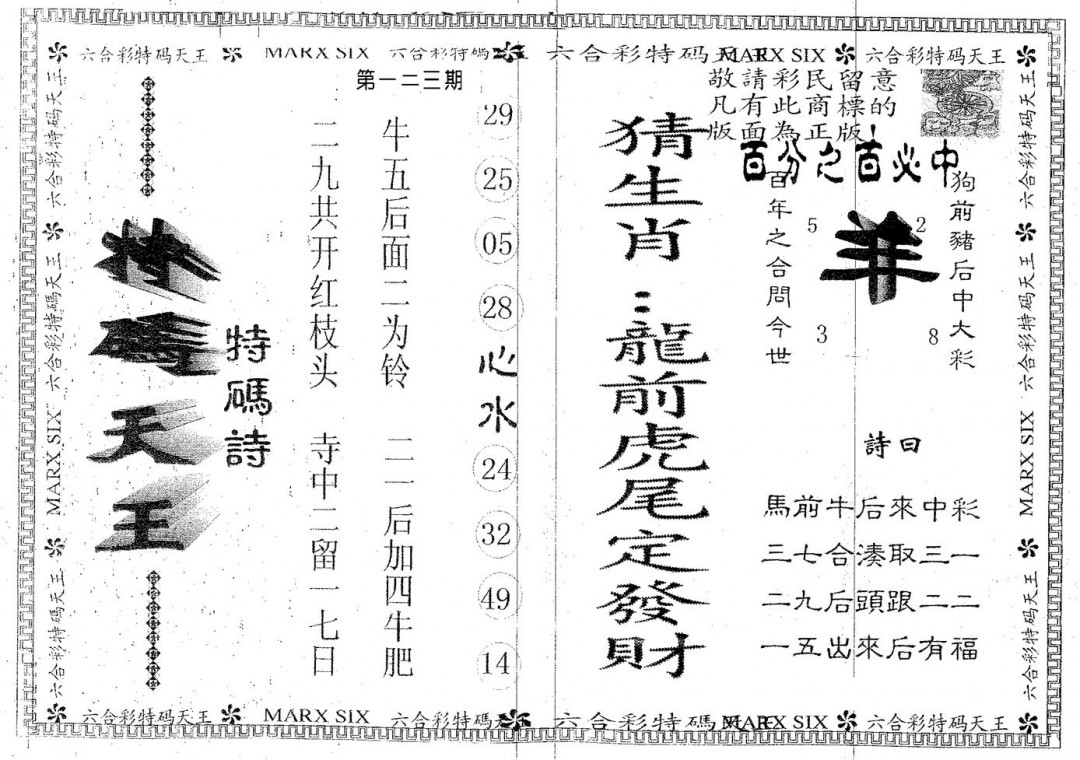 六合彩特码天王 MARX SIX 六合彩特碼天王 六合彩特码天王 MARX SIX 六合彩特码天王
第一二三期
敬請彩民留意
凡有此商標的
版面為正版!
百分之百必中
狗前豬后中大彩
羊
5
2
3
8
百年之合問今世
詩曰
馬前牛后來中彩
三七合湊取三一
二九后頭跟二二
一五出來后有福
猜生肖:龍前虎尾定發財
29
25
05
28
心水
24
32
49
14
牛五后面二为铃 二一后加四牛肥
二九共开红枝头 寺中二留一七日
特碼詩
特碼天王
六合彩特码天王
六合彩特碼天王
MARX SIX
六合彩特码天王
六合彩特码天王
六合彩特码天王
MARX SIX
六合彩特码天王
六合彩特码天王 MARX SIX 六合彩特碼天王 六合彩特碼天王 MARX SIX 六合彩特码天王